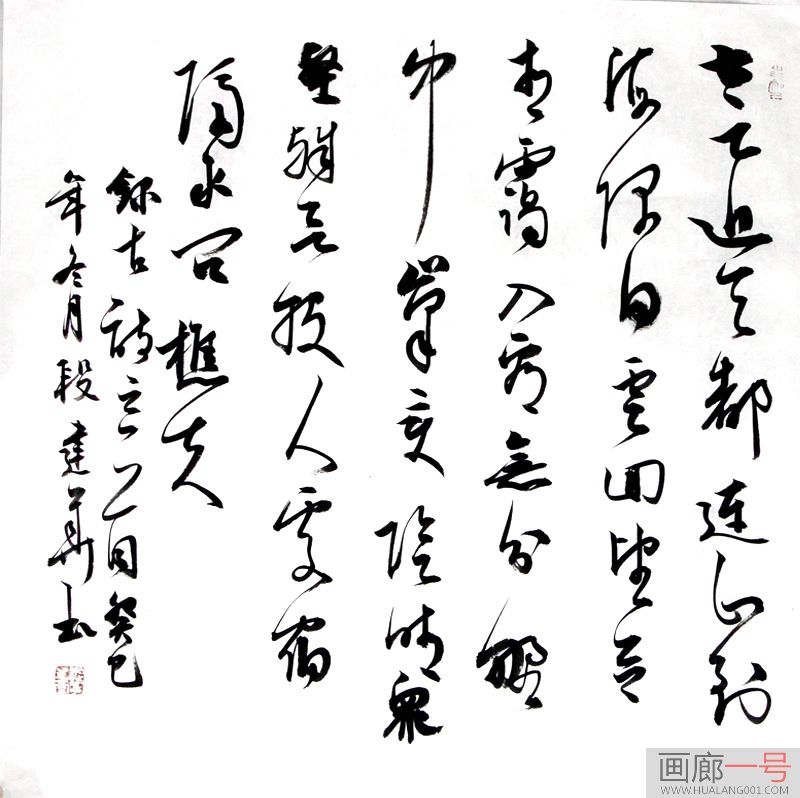 太乙近天都連山到
海隅白雲回望合
青靄入看無分野
中峯变陰晴衆
壑殊欲投人處宿
隔水问樵夫
録古詩之一首癸巳
年冬月段建華書
画廊一号
WWW.HUALANG001.COM